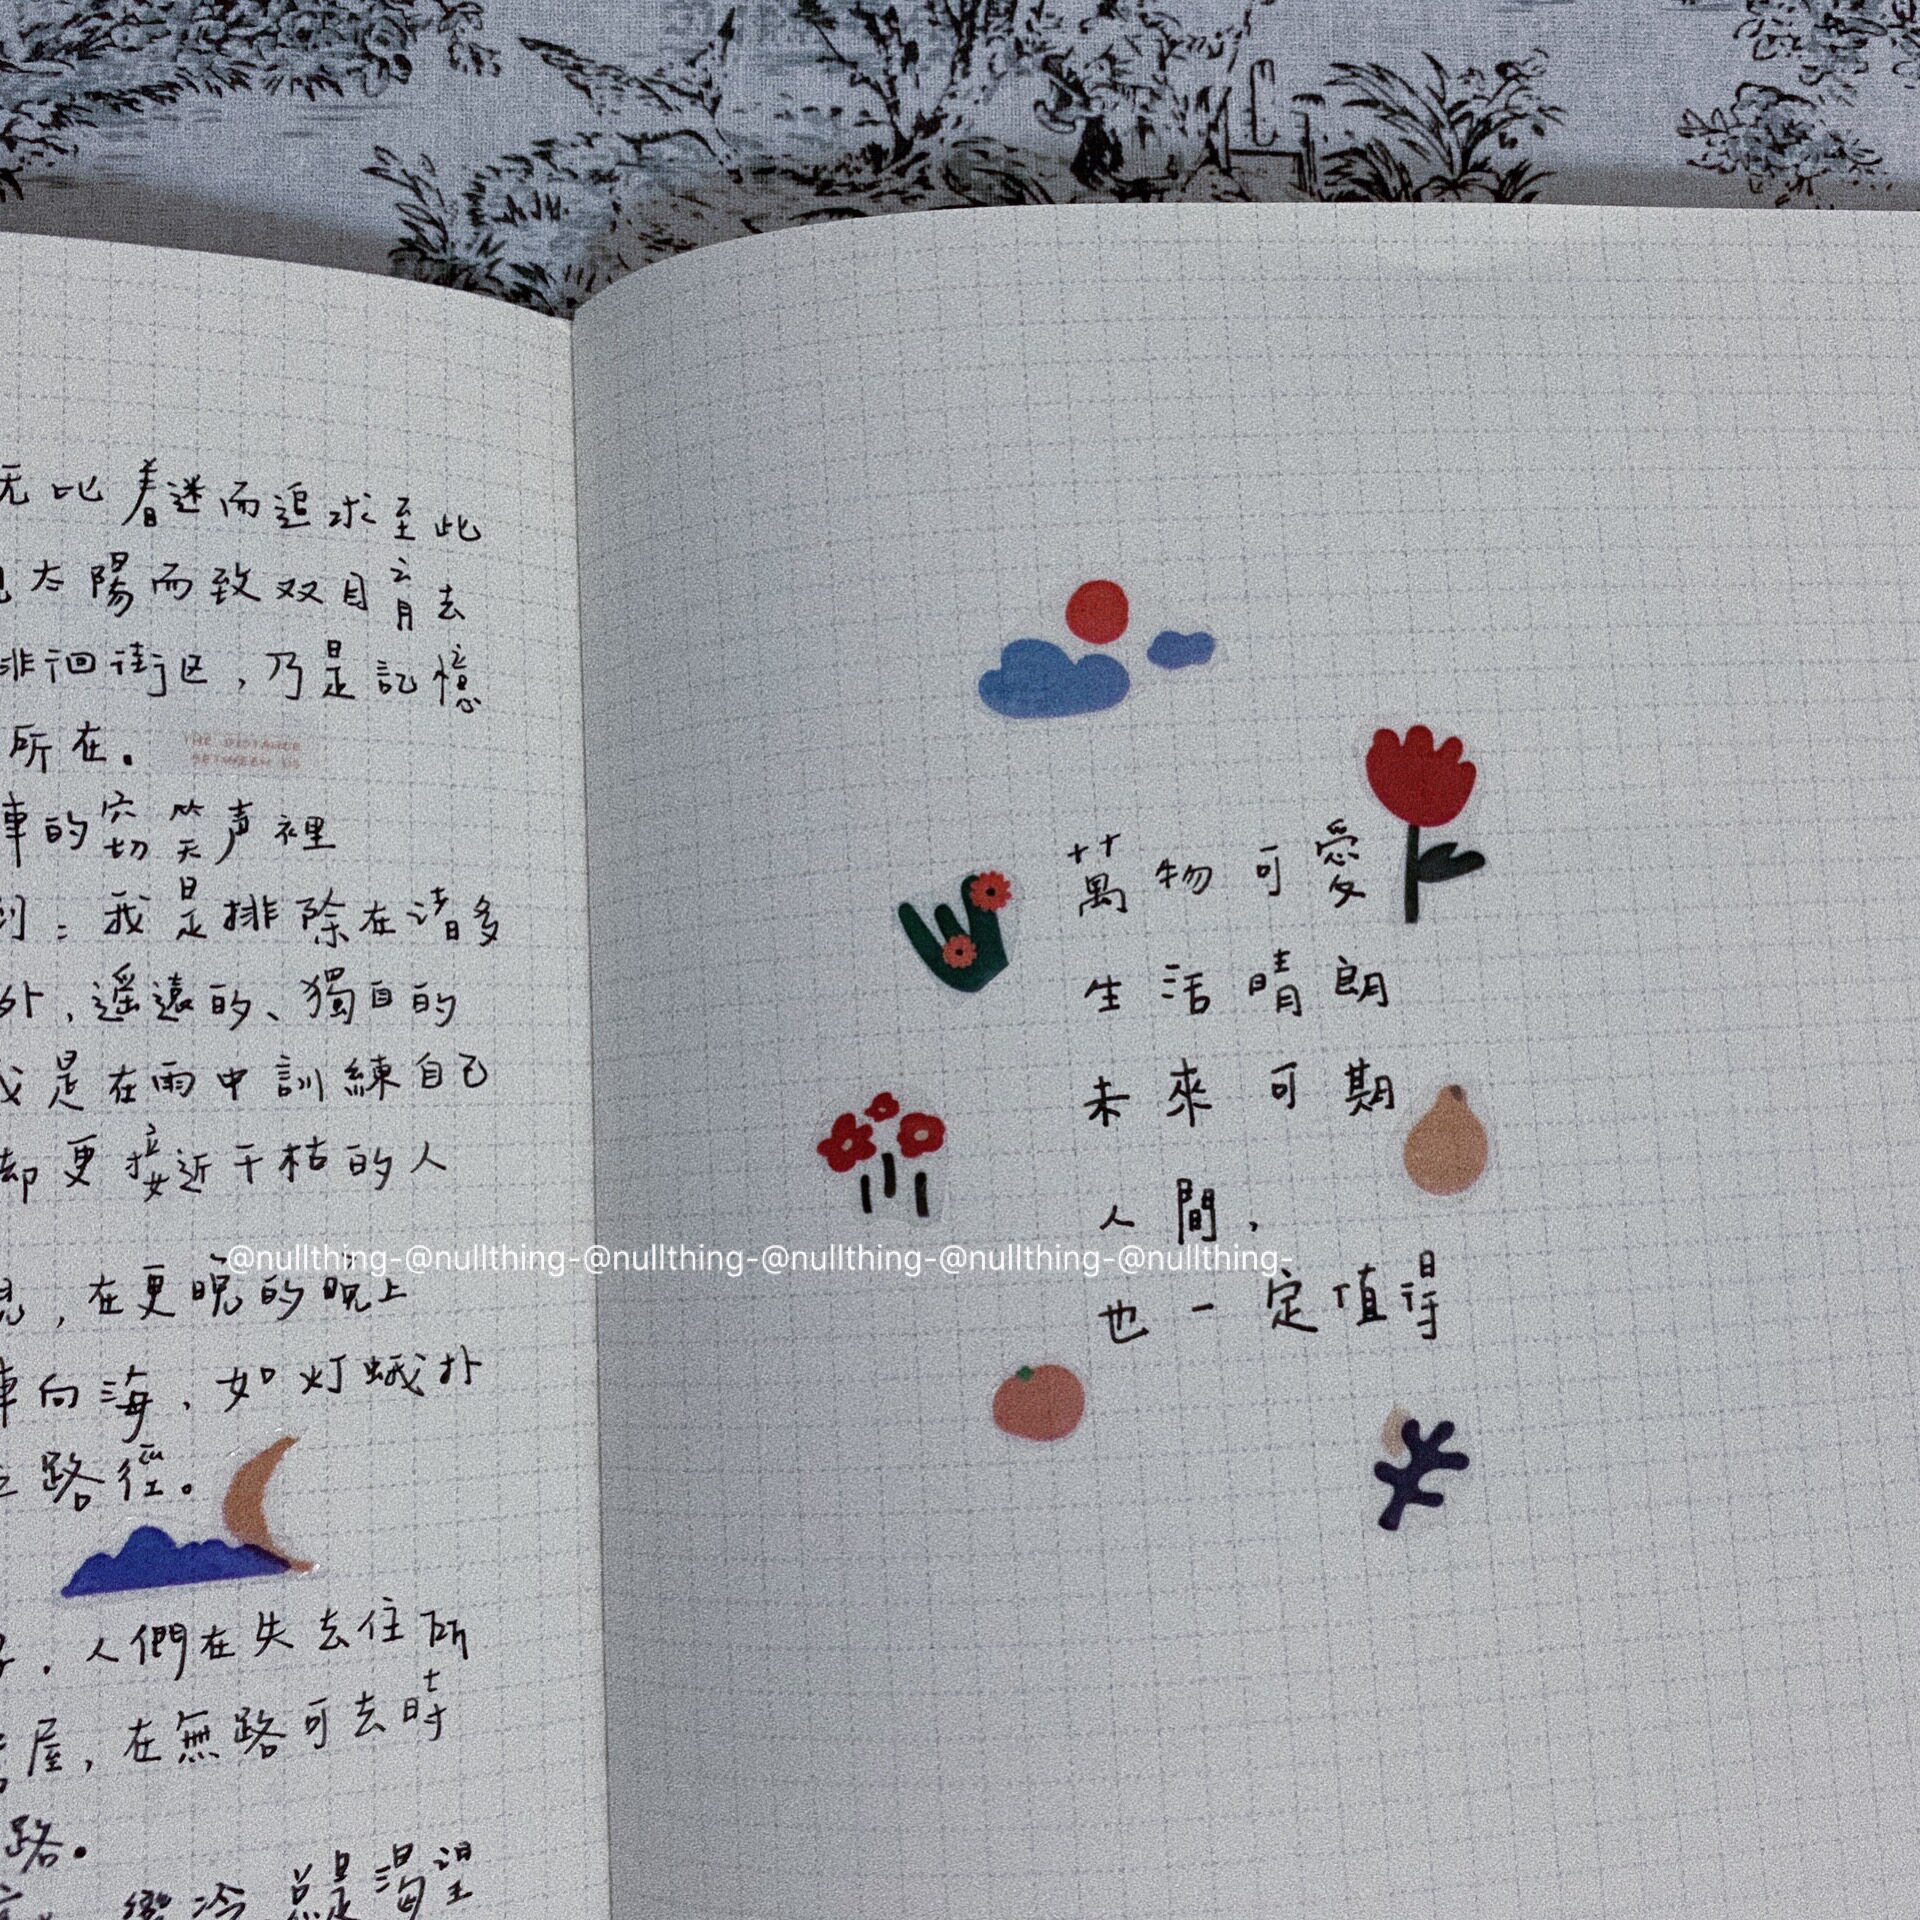 无比着迷而追求至此
太陽而致双目育去
徘徊街区,乃是記憶
所在。
THE DISTANCE
BETWEEN US
車的窃笑声裡
到:我是排除在诸多
外,遥遠的、獨自的
我是在雨中訓練自己
却更接近干枯的人
,在更晚的晚上
車向海,如灯蛾扑
路徑。
,人們在失去住所
屋,在無路可去時
路。
冷 总是渴望
萬物可愛
生活晴朗
未來可期
人間,
也一定值得
@nullthing-@nullthing-@nullthing-@nullthing-@nullthing-@nullthing-